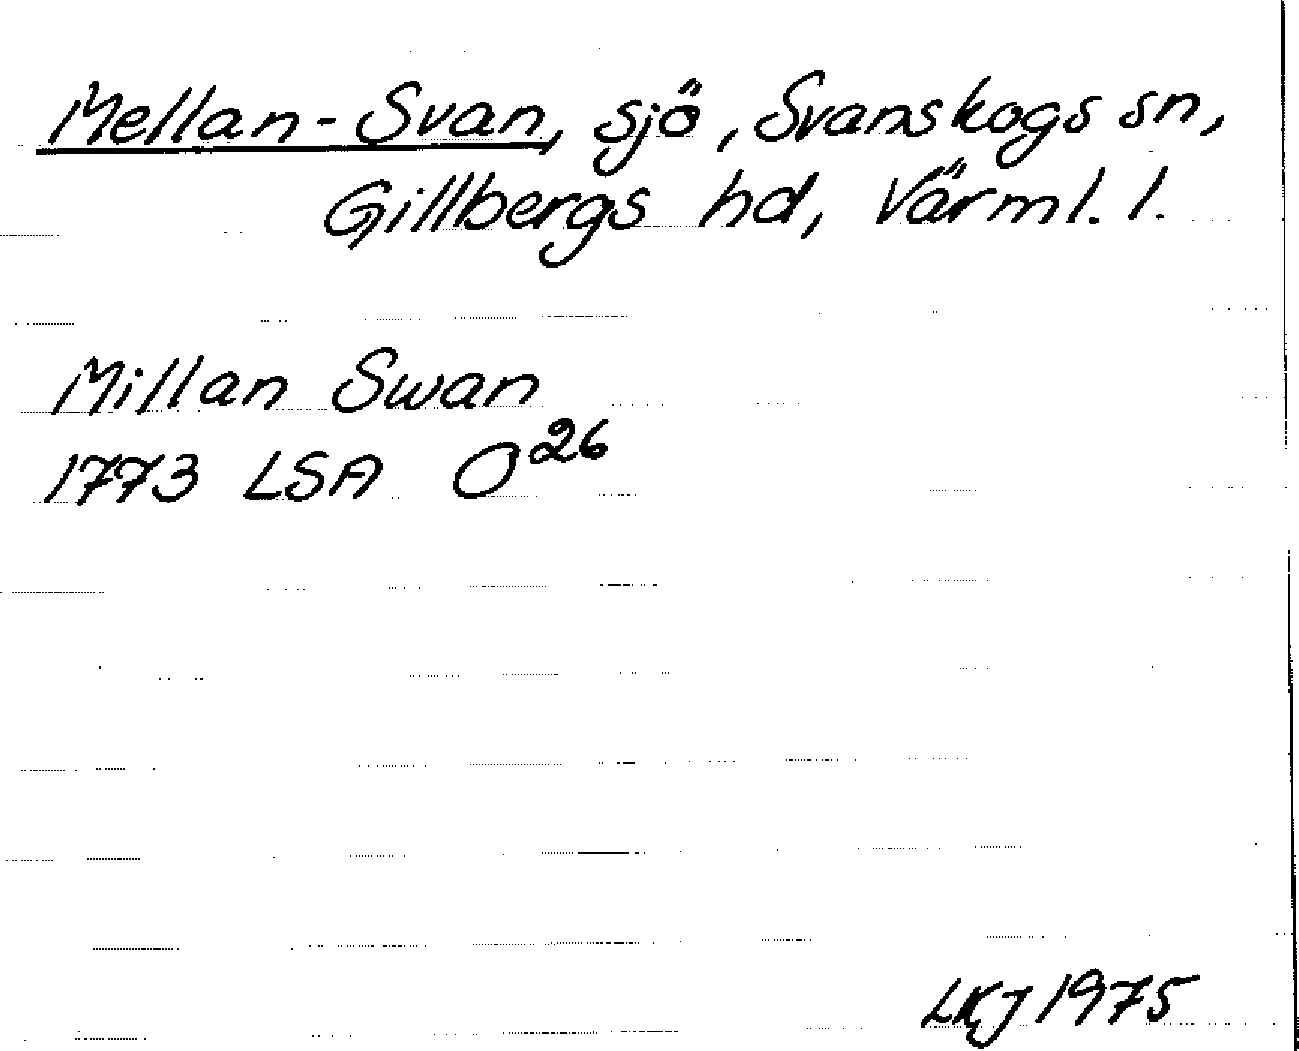 Mellan-Svan, sjö, Svanskogs sn,
Gillbergs hd, Värml. l.
Millan Swan
1773 LSA O26
LKJ 1975